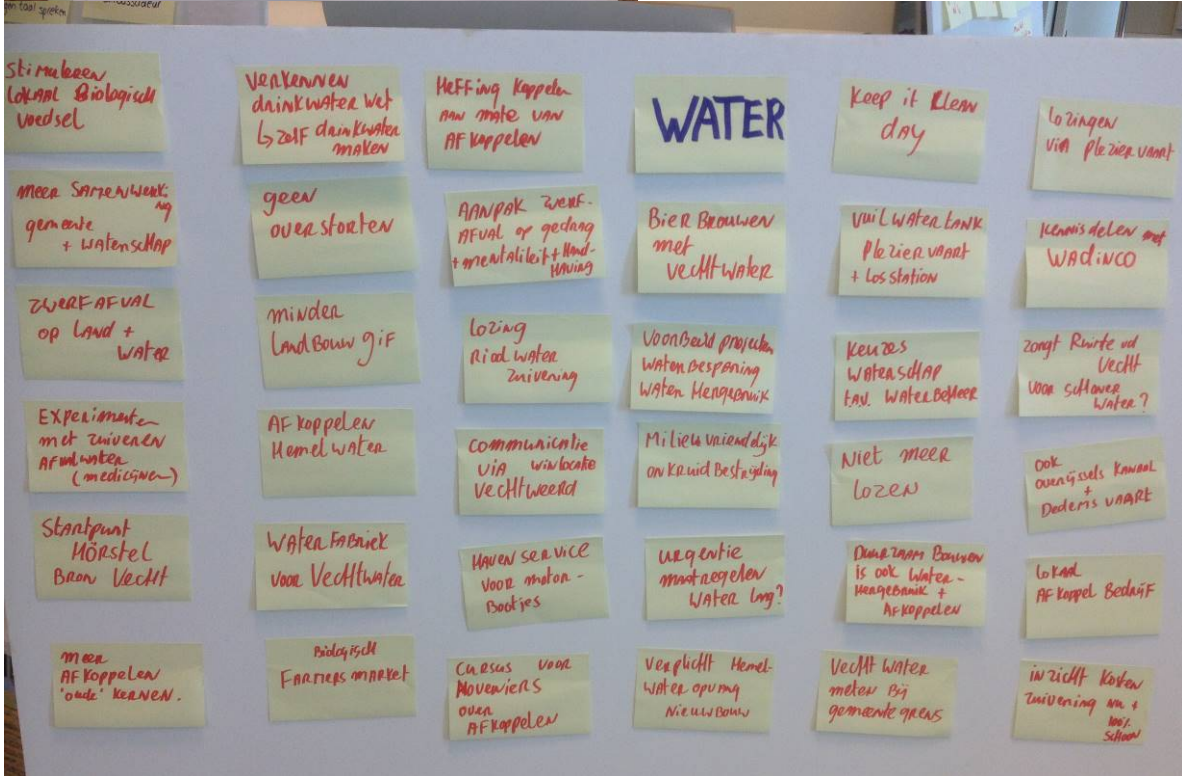 gen taal spreken
ambassadeur
Stimuleren
lokaal Biologisch
voedsel
meer samenwerki
ng
gemeente
+ waterschap
zwerfafval
op land +
water
Experimenten
met zuiveren
afvalwater
(medicijnen)
Startpunt
Hörstel
Bron Vecht
meer
afkoppelen
'oude' kernen.
Verkennen
drinkwater wet
↳ zelf drinkwater
maken
geen
overstorten
minder
landbouw gif
Afkoppelen
Hemelwater
Waterfabriek
voor Vechtwater
Biologisch
Farmers market
Heffing koppelen
aan mate van
afkoppelen
Aanpak zwerf-
afval op gedrag
+ mentaliteit + Hand-
having
lozing
Riool water
zuivering
communicatie
via winlocatie
Vechtweerd
Haven service
voor motor-
Bootjes
Cursus voor
Hoveniers
over
afkoppelen
WATER
Bier Brouwen
met
Vechtwater
Voorbeeld projecten
Waterbesparing
Water Hergebruik
Milieuvriendelijk
onkruid Bestrijding
urgentie
maatregelen
Water laag?
Verplicht Hemel-
water opvang
Nieuwbouw
Keep it Clean
day
vuilwatertank
Pleziervaart
+ Losstation
Keuzes
waterschap
t.a.v. waterbeheer
Niet meer
lozen
Duurzaam Bouwen
is ook water-
Hergebruik +
Afkoppelen
Vechtwater
meten Bij
gemeentegrens
lozingen
via pleziervaart
kennis delen met
Wadinco
zorgt Ruimte vd
Vecht
voor schoner
water?
ook
overijssels kanaal
+
Dedemsvaart
lokaal
Afkoppel Bedrijf
inzicht kosten
zuivering nu +
100%
schoon